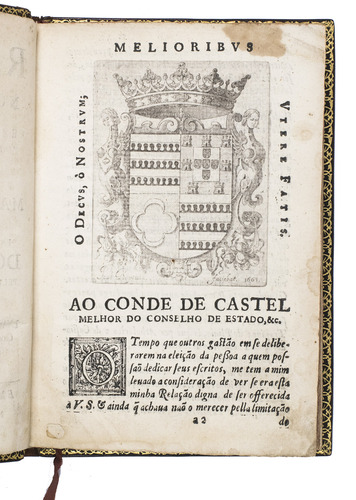 MELIORIBVS
O DECVS, ò NOSTRVM;
VTERE FATIS;
AO CONDE DE CASTEL
MELHOR DO CONSELHO DE ESTADO, &c.
O Tempo que outros gastão em se delibe-
rarem na eleição da peßoa a quem pos-
saõ dedicar seus escritos, me tem a mim
leuado a consideração de ver se era esta
minha Relação digna de ser offerecida
à V. S. & ainda q̃ achaua naõ o merecer pella limitação
a2
do